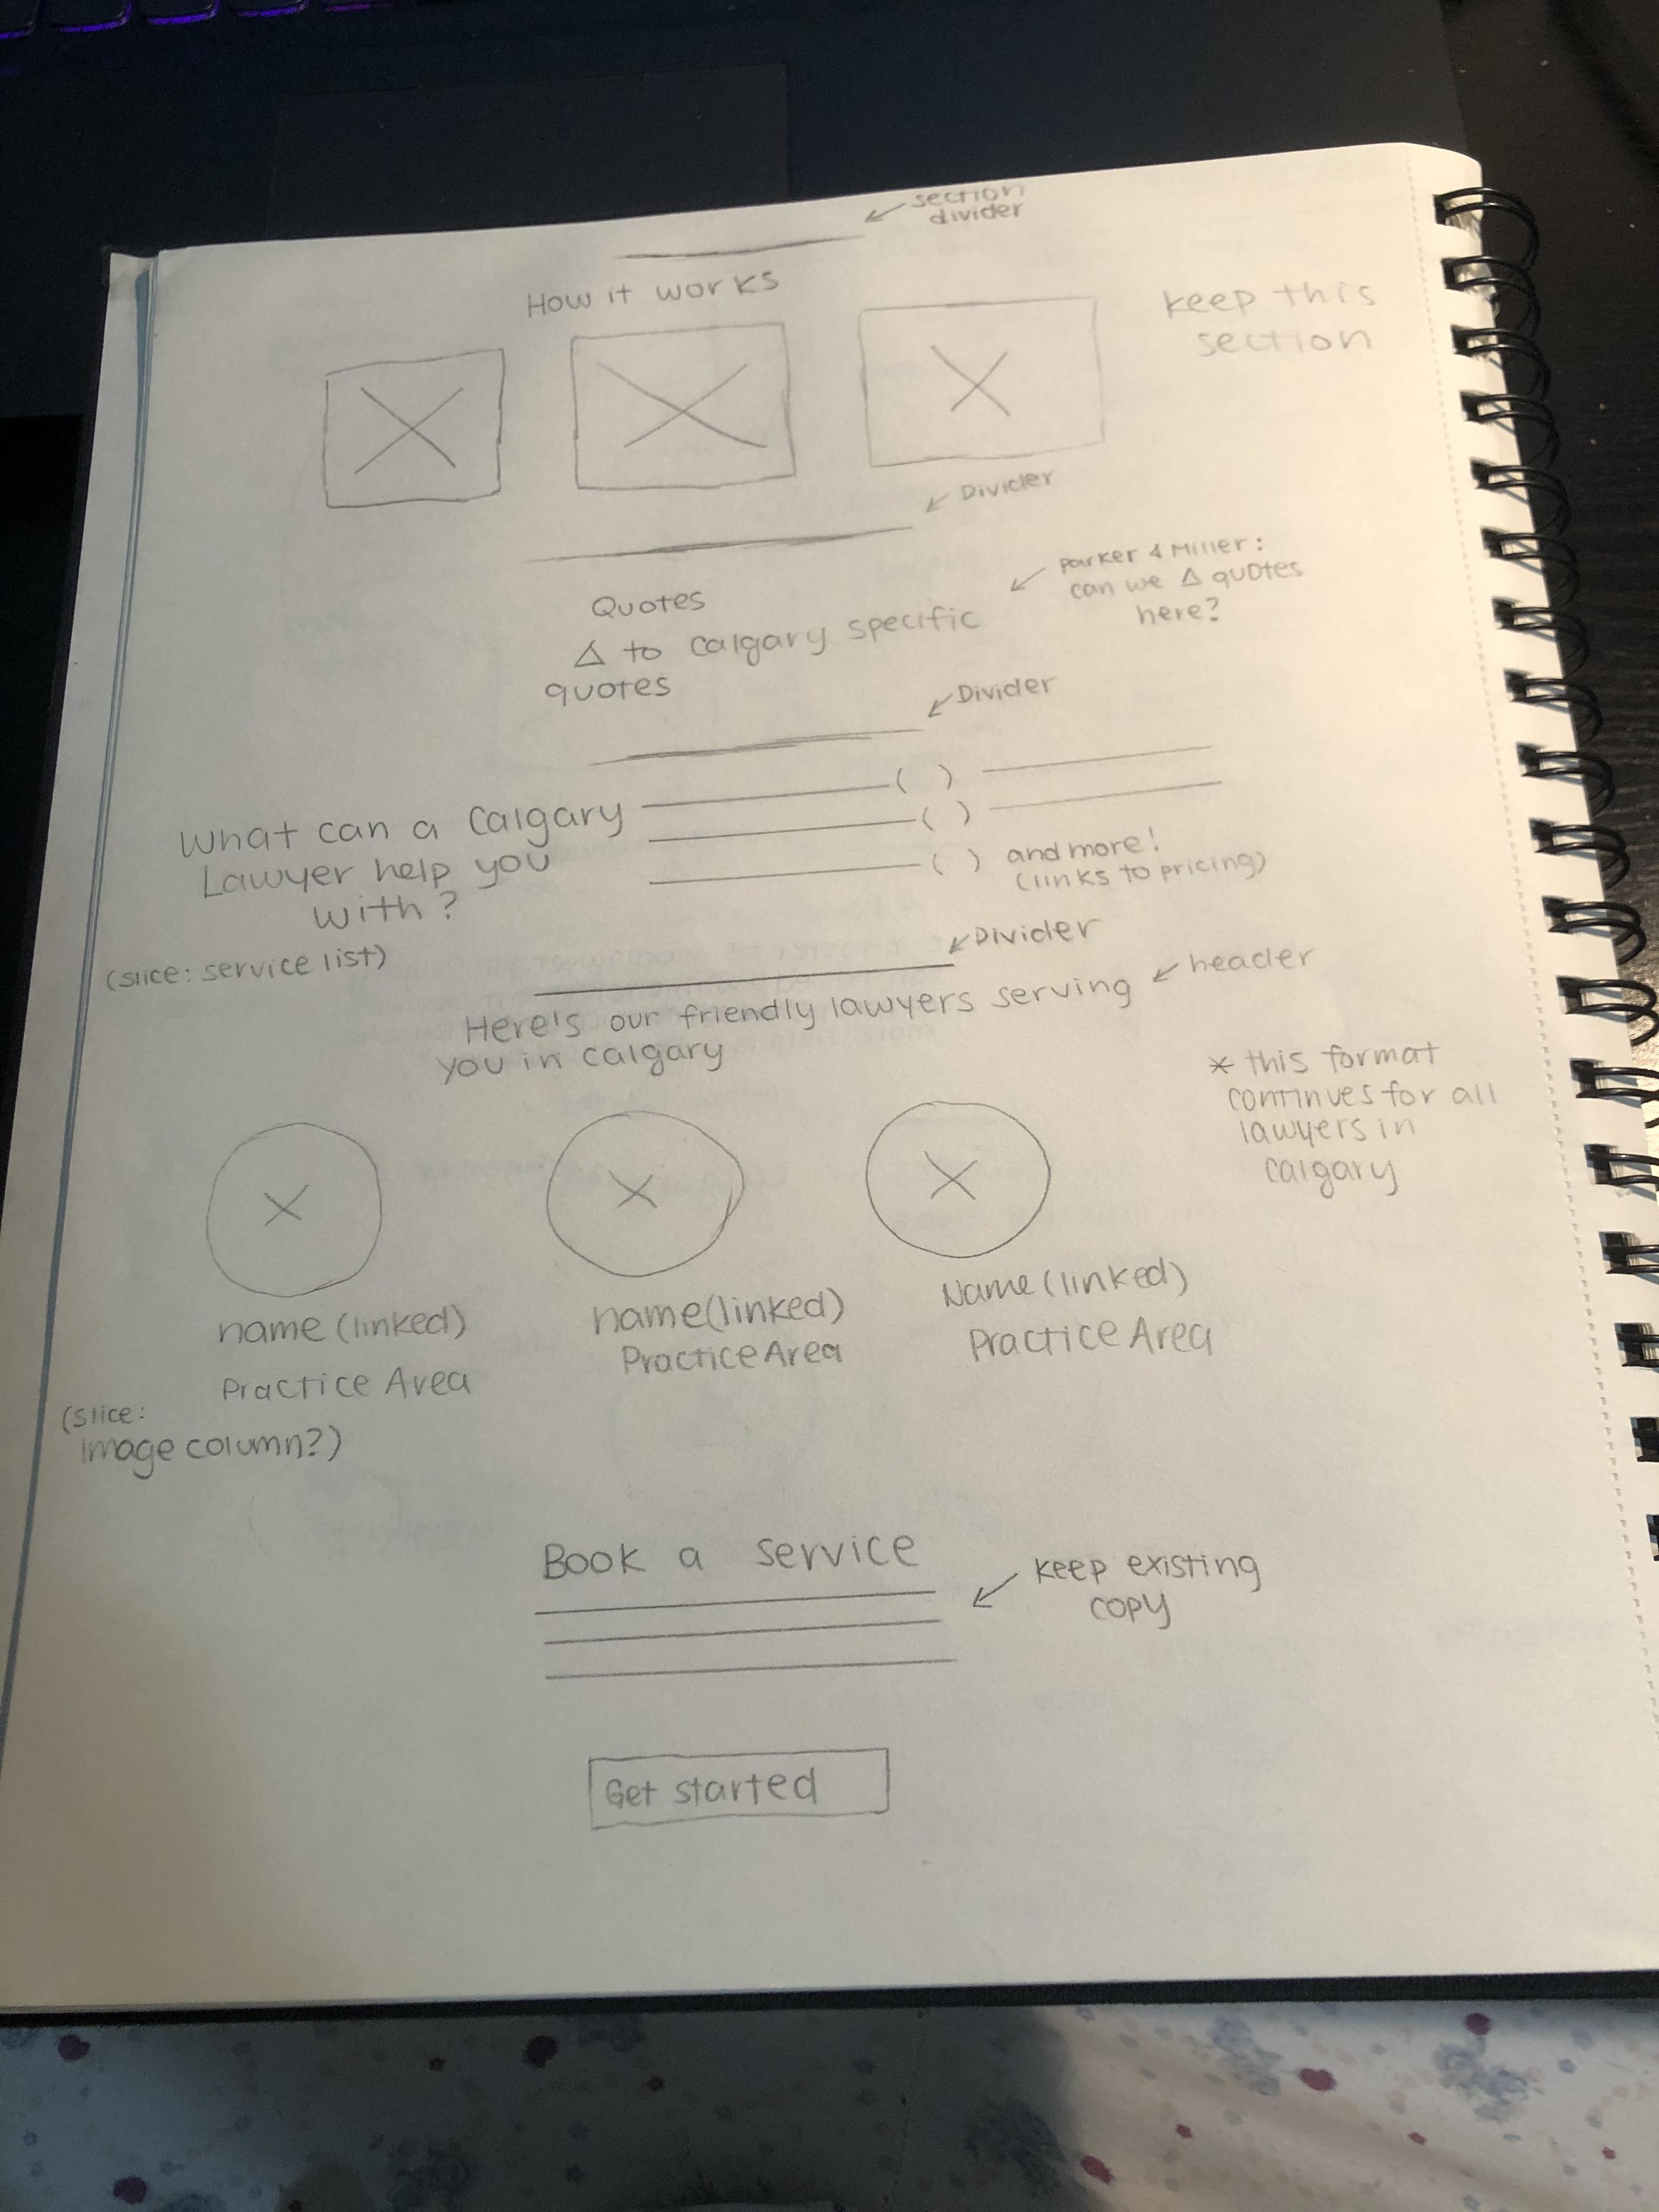 section
divider
How it works
keep this
section
Divider
Quotes
Δ to Calgary specific
quotes
Parker & Miller:
can we Δ quotes
here?
Divider
What can a Calgary
Lawyer help you
with?
(slice: service list)
( )
( )
( ) and more!
(links to pricing)
Divider
header
Here's our friendly lawyers serving
you in calgary
* this format
continues for all
lawyers in
calgary
name (linked)
Practice Area
name (linked)
Practice Area
Name (linked)
Practice Area
(slice:
Image column?)
Book a service
keep existing
copy
Get started